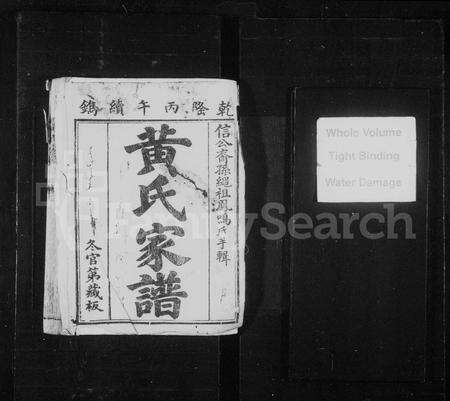 乾隆丙午續鐫
信公裔孫繩祖鳳鳴氏手輯
黃氏家譜
冬官第藏板
Whole Volume
Tight Binding
Water Damage
MyChinaSearch